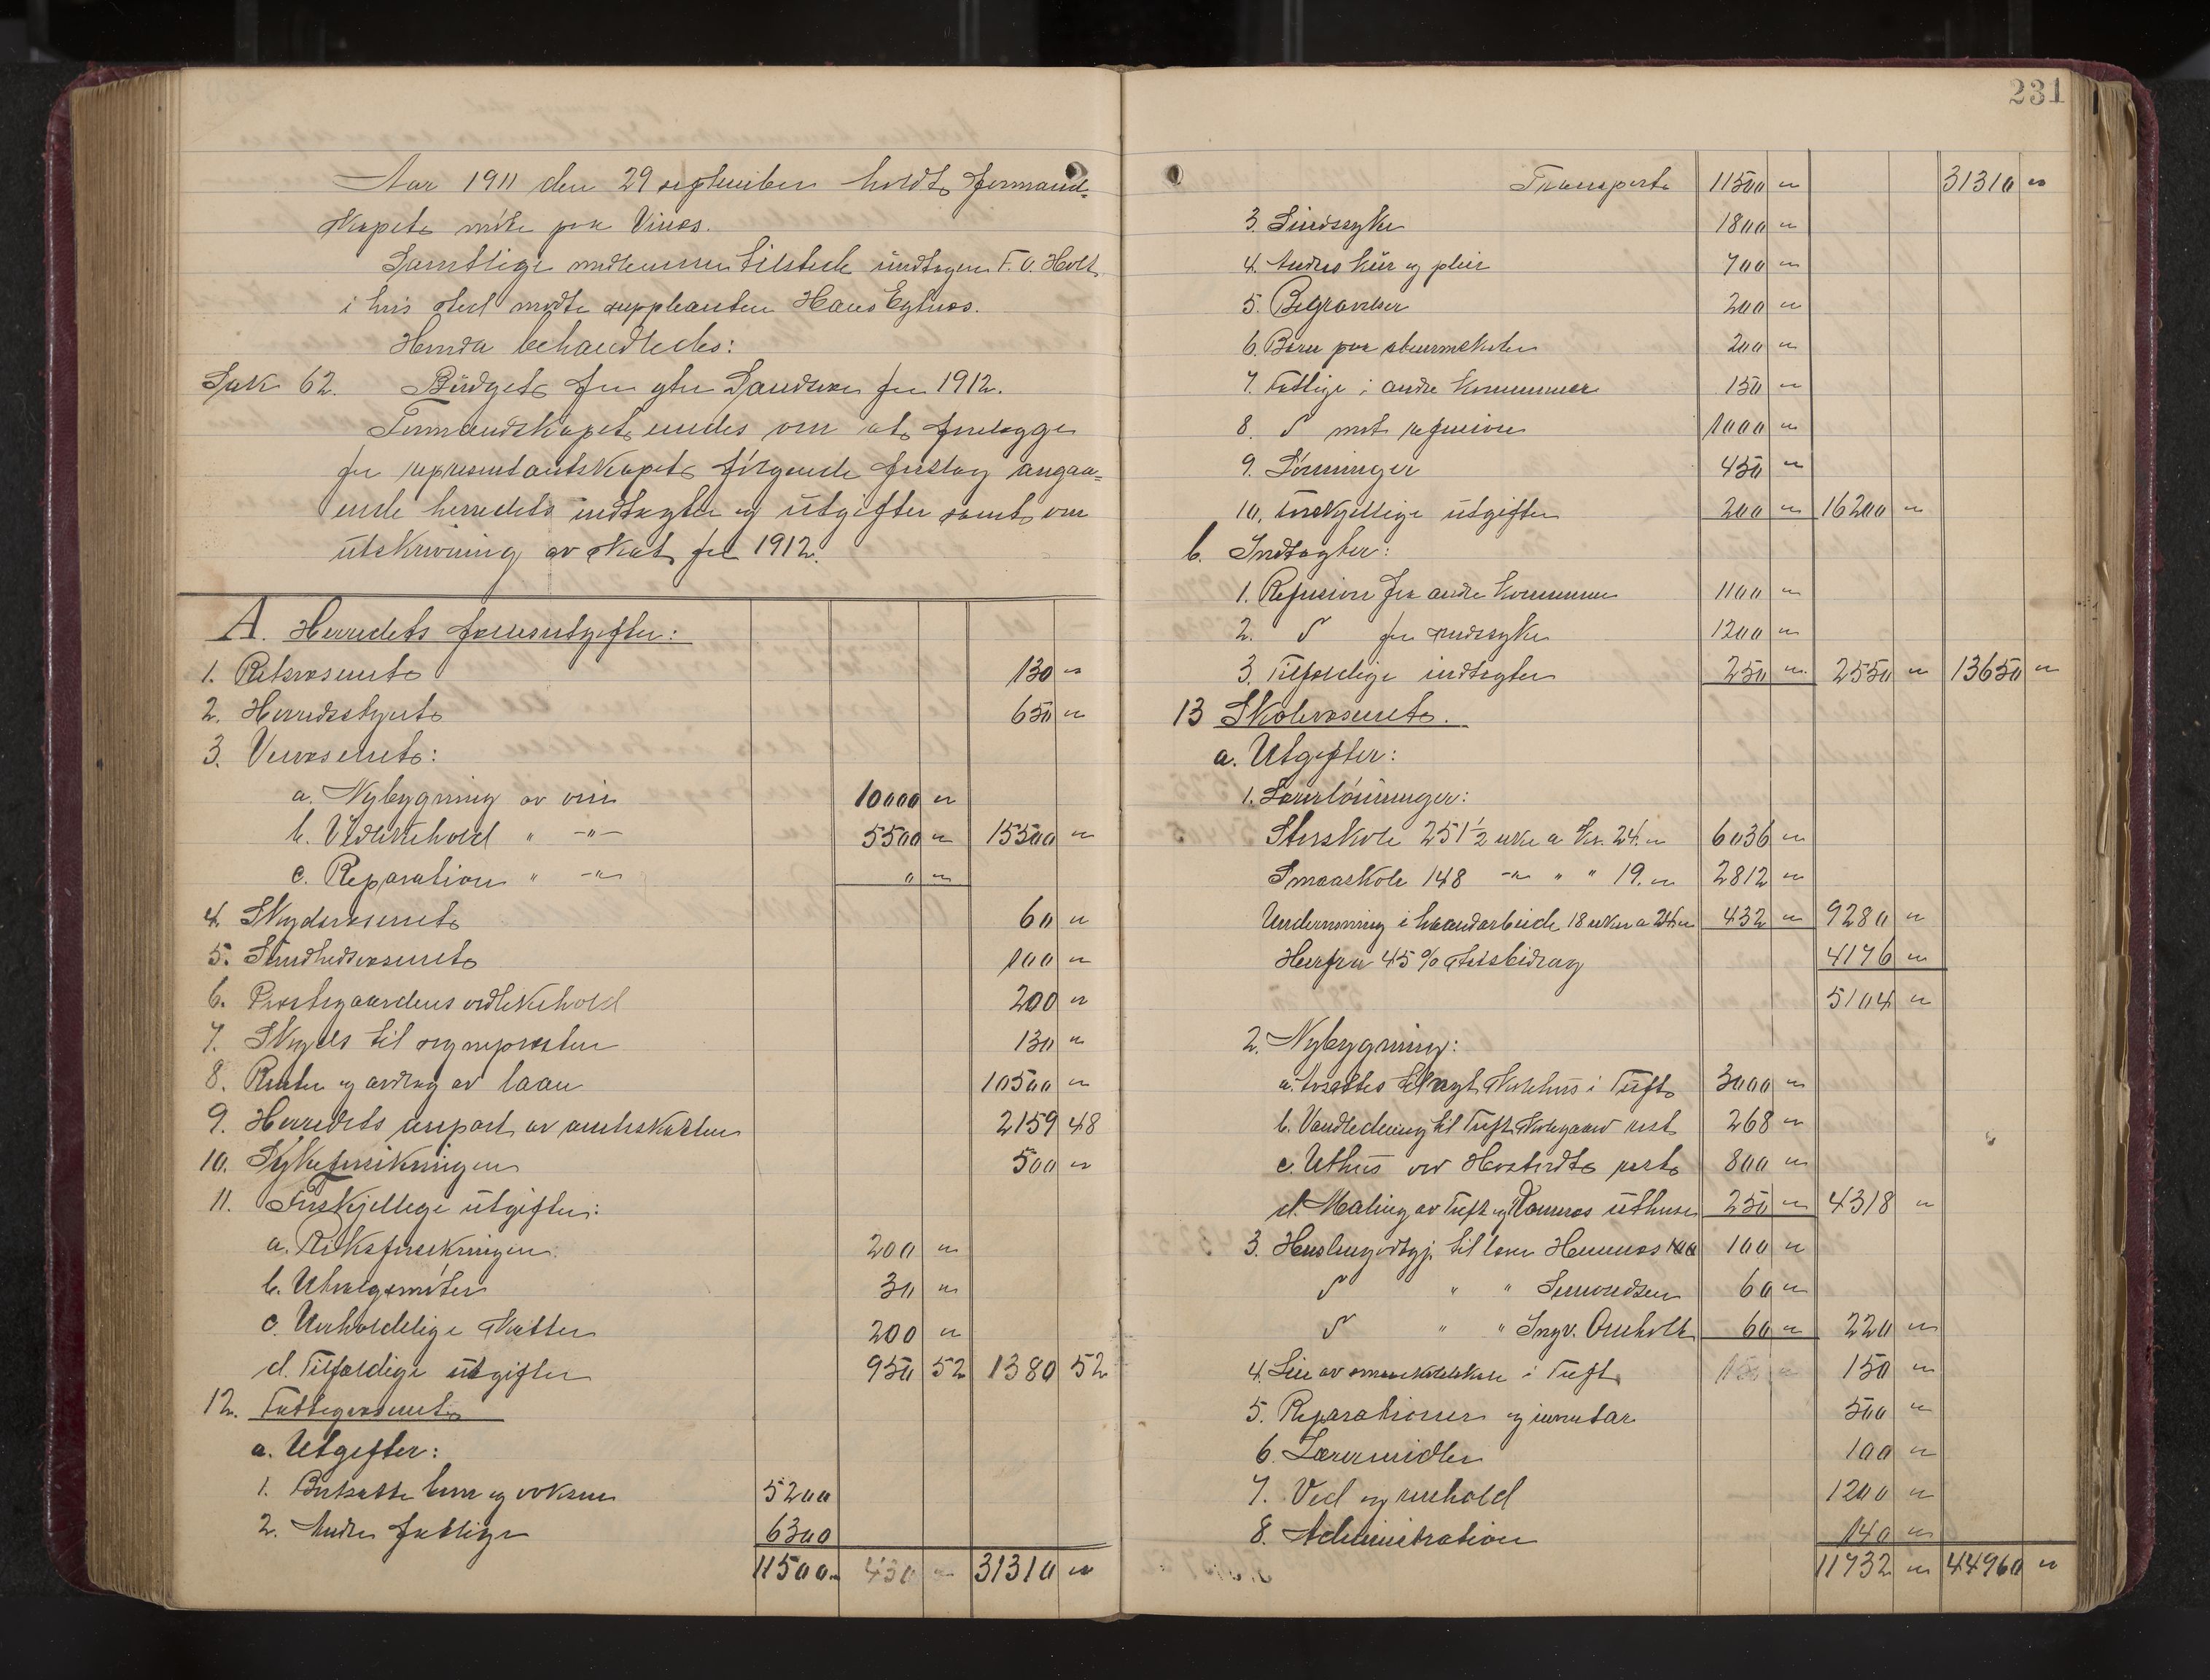 Aar 1911 den 29 september holdts formand-
skapets møte paa Vinæs.
Samtlige medlemmer tilstede undtagen T. O. Holt
i hvis sted møtte suppleanten Hans
Herunder behandledes:
Sak 62. Budget for ytre Sandsvær for 1912.
Formandskapet enedes om at forelægge
for representantskapet følgende forslag angaa-
ende herredets indtægter og utgifter samt om
utskrivning av skat for 1912.
A. Herredets fællesutgifter:
1. Retsvæsenet 130 "
2. Herredsstyret 650 "
3. Veivæsenet:
a. Nybygning av veie 10000 "
b. Vedlikehold " -"- 5500 " 15500 "
c. Reparation " -"- " "
4. Skydsvæsenet 60 "
5. Sundhetsvæsenet 100 "
6. Prestegaardens vedlikehold 200 "
7. Skyds til sognepræsten 130 "
8. Renter og avdrag av laan 10500 "
9. Herredets anpart av amtsskatten 2159 48
10. Sykeforsikringen 500 "
11. Forskjellige utgifter:
a. Riksforsikringen 200 "
b. Utvalgsmøter 30 "
c. Uerholdelige skatter 200 "
d. Tilfældige utgifter 950 52 1380 52
12. Fattigvæsenet
a. Utgifter:
1. Bortsatte barn og voksne 5200
2. Andre fattige 6300
11500 " 430 " 31310 "
231
Transport 11500 " 31310 "
3. Sindssyke 1800 "
4. Andres kur og pleie 700 "
5. Begravelser 200 "
6. Barn paa abnormskoler 200 "
7. Fattige i andre kommuner 150 "
8. " mot refusion 1000 "
9. Lønninger 450 "
10. Forskjellige utgifter 200 " 16200 "
b. Indtægter:
1. Refusion fra andre kommuner 1100 "
2. " for sindssyke 1200 "
3. Tilfældige indtægter 250 " 2550 " 13650 "
13 Skolevæsenet.
a. Utgifter:
1. Lærerlønninger:
Storskole 251 1/2 uke a kr. 24. " 6036 "
Smaaskole 148 -"- " " 19. " 2812 "
Undervisning i haandarbeide 18 uker a 24 " 432 " 9280 "
Herfra 45 % statsbidrag 4176 "
5104 "
2. Nybygning:
a. Avsættes til nyt skolehus i Tuft 3000 "
b. Vandledning til Tuft skolegaard rest 268 "
c. Uthus ved rest 800 "
d. Maling av Tuft og uthuse 250 " 4318 "
3. til lærer 100 "
" " " 60 "
" " " Ingv. Omholt 60 " 220 "
4. Leie av smaaskolelokale i Tuft 150 " 150 "
5. Reparationer og inventar 500 "
6. Læremidler 100 "
7. Ved og renhold 1200 "
8. Administration 140 "
11732 " 44960 "